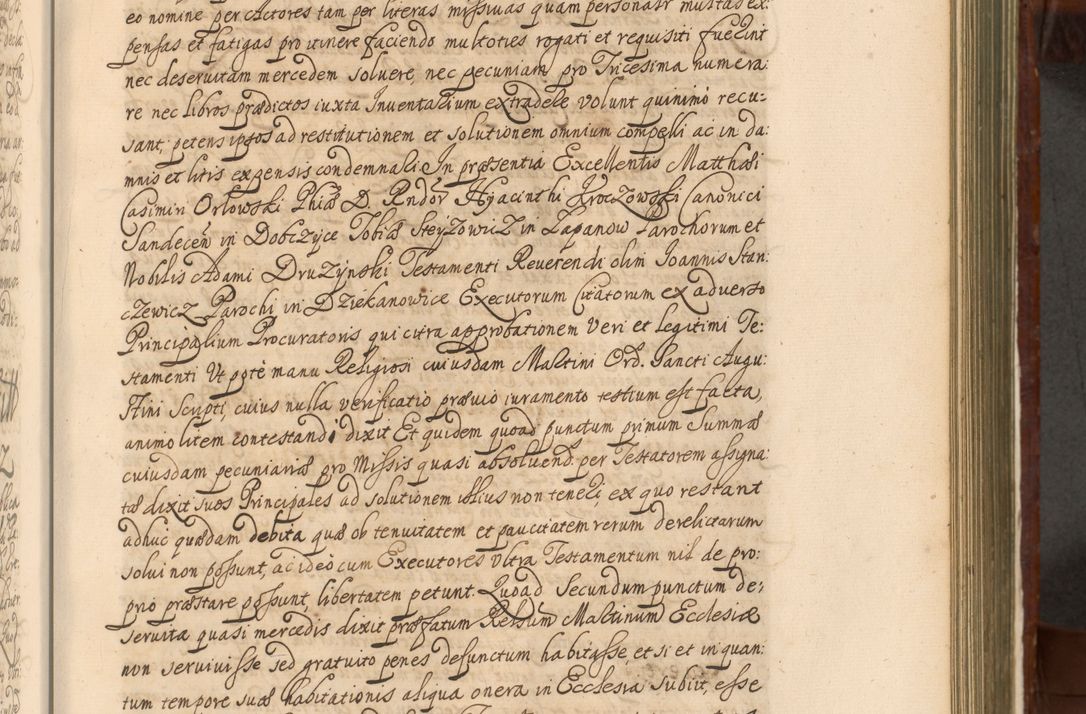 eo nomine per Actores tam per literas missivas quam personalr multas ex:
pensas et fatigas pro itinere faciendo multoties rogati et requisiti fuerint
nec deservitam mercedem solvere, nec pecuniam pro Tricesima numera:
re nec libros prædictos iuxta Inventarium extradere volunt quinimo recu:
sant, petens ipsos ad restitutionem et solutionem omnium compelli ac in da:
mnis et litis expensis condemnari. In præsentia Excellentis Matthæi
Casimiri Orłowski Phiæ D. Rndor Hyacinthi Kroczowski Canonici
Sandecen in Dobczyce Tobiæ Heyzowicz in Łapanow Parochorum et
Nobilis Adami Druzynski Testamenti Reverendi olim Joannis Stan:
czewicz Parochi in Dziekanowice Executorum Citatorum ex adverso
Principalium Procuratoris qui citra approbationem veri et legitimi Te:
stamenti Ut poté manu Religiosi cuiusdam Martini Ord. Sancti Augu:
stini Scripti, cuius nulla verificatio prævio iuramento testium est facta,
animo litem contestandi dixit Et quidem quoad punctum primum Summæ
cuiusdam pecuniariæ pro Missis quasi absolvend. per Testatorem assigna:
tæ dixit suos Principales ad solutionem illius non teneri, ex quo restant
adhuc quædam debita quæ ob tenuitatem et paucitatem rerum derelictarum
solui non possunt, ac ideo cum Executores ultra Testamentum nil de pro:
prio præstare possunt, libertatem petunt. Quoad Secundum punctum de:
servitæ quasi mercedis dixit præfatum Relsum Martinum Ecclesiæ
non servivisse sed gratuito penes defunctum habitasse, et si et in quan:
tum tempore suæ habitationis aliqua onera in Ecclesia subiit, esse